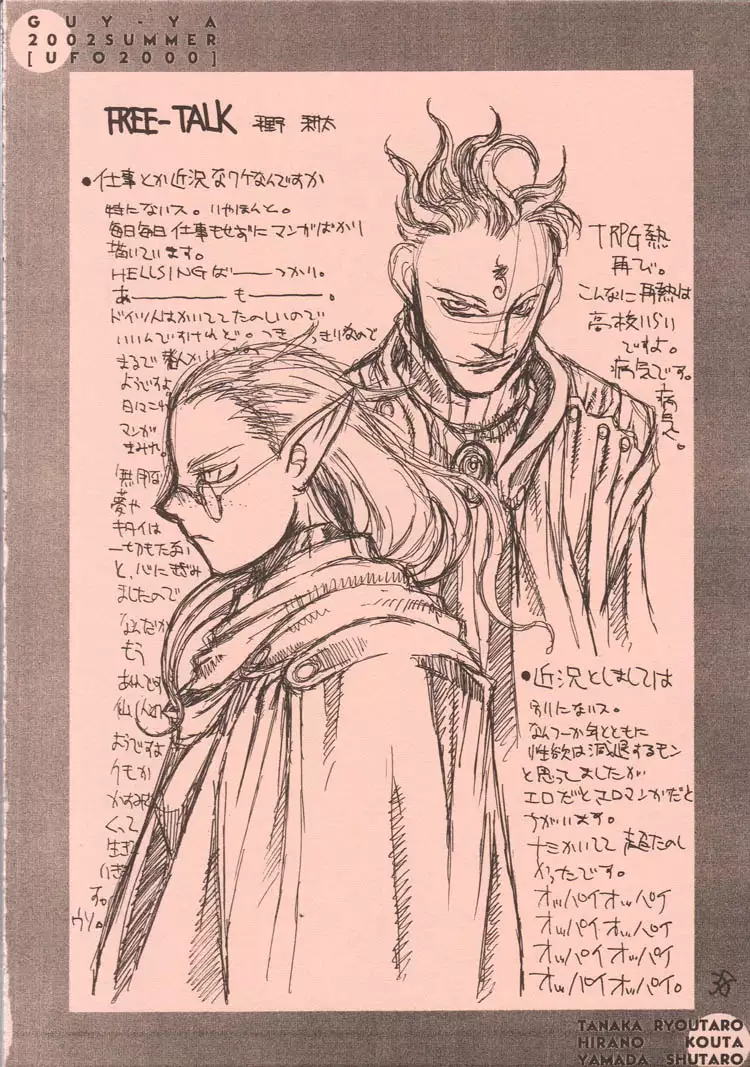 GUY-YA
2002SUMMER
[UFO2000]
FREE-TALK 平野 耕太
●仕事とか近況なワケなんですか
特にないス。いやほんと。
毎日毎日仕事もせずにマンガばかり
描いています。
HELLSINGばーーっかり。
あーーーもーーー。
ドイツ人はかいててたのしいので
いいんですけれど。つきっきりなので
まるで
ようですよ
日にこれ
マンガ
まみれ。
夢や
キタイは
一切もたない
と、心にきざみ
ましたので
なんだか
もう
ようですよ
クモか
かすみ
くって
生き
す。
ウソ。
TRPG熱
再び。
こんなに再熱は
高校いらい
ですよ。
病気です。
病気。
●近況としましては
別にないス。
なんつーか年とともに
性欲は減退するモン
と思ってましたが
エロだとエロマンガだと
ちがいます。
ナミかいてて超たのし
かったです。
オッパイオッパイ
オッパイオッパイ
オッパイオッパイ
オッパイオッパイ。
TANAKA RYOUTARO
HIRANO KOUTA
YAMADA SHUTARO